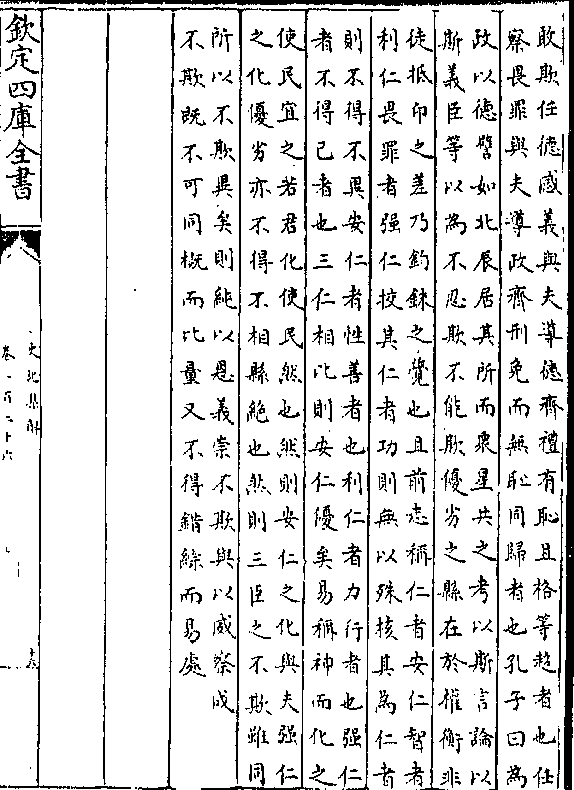 敢欺任德感義與夫導德齊禮有恥且格等趍者也任
察畏罪與夫導政齊刑免而無恥同歸者也孔子曰為
政以德譬如北辰居其所而衆星共之考以斯言論以
斯義臣等以為不忍欺不能欺優劣之縣在於權衡非
徒抵卬之差乃鈞銖之覺也且前志稱仁者安仁智者
利仁畏罪者强仁校其仁者功則無以殊核其為仁者
則不得不異安仁者性善者也利仁者力行者也强仁
者不得已者也三仁相比則安仁優矣易稱神而化之
使民宜之若君化使民然也然則安仁之化與夫强仁
之化優劣亦不得不相縣絶也然則三臣之不欺雖同
所以不欺異矣則純以恩義崇不欺與以威察成
不欺既不可同概而比量又不得錯綜而易處
欽定四庫全書
史記集解
卷一百二十六